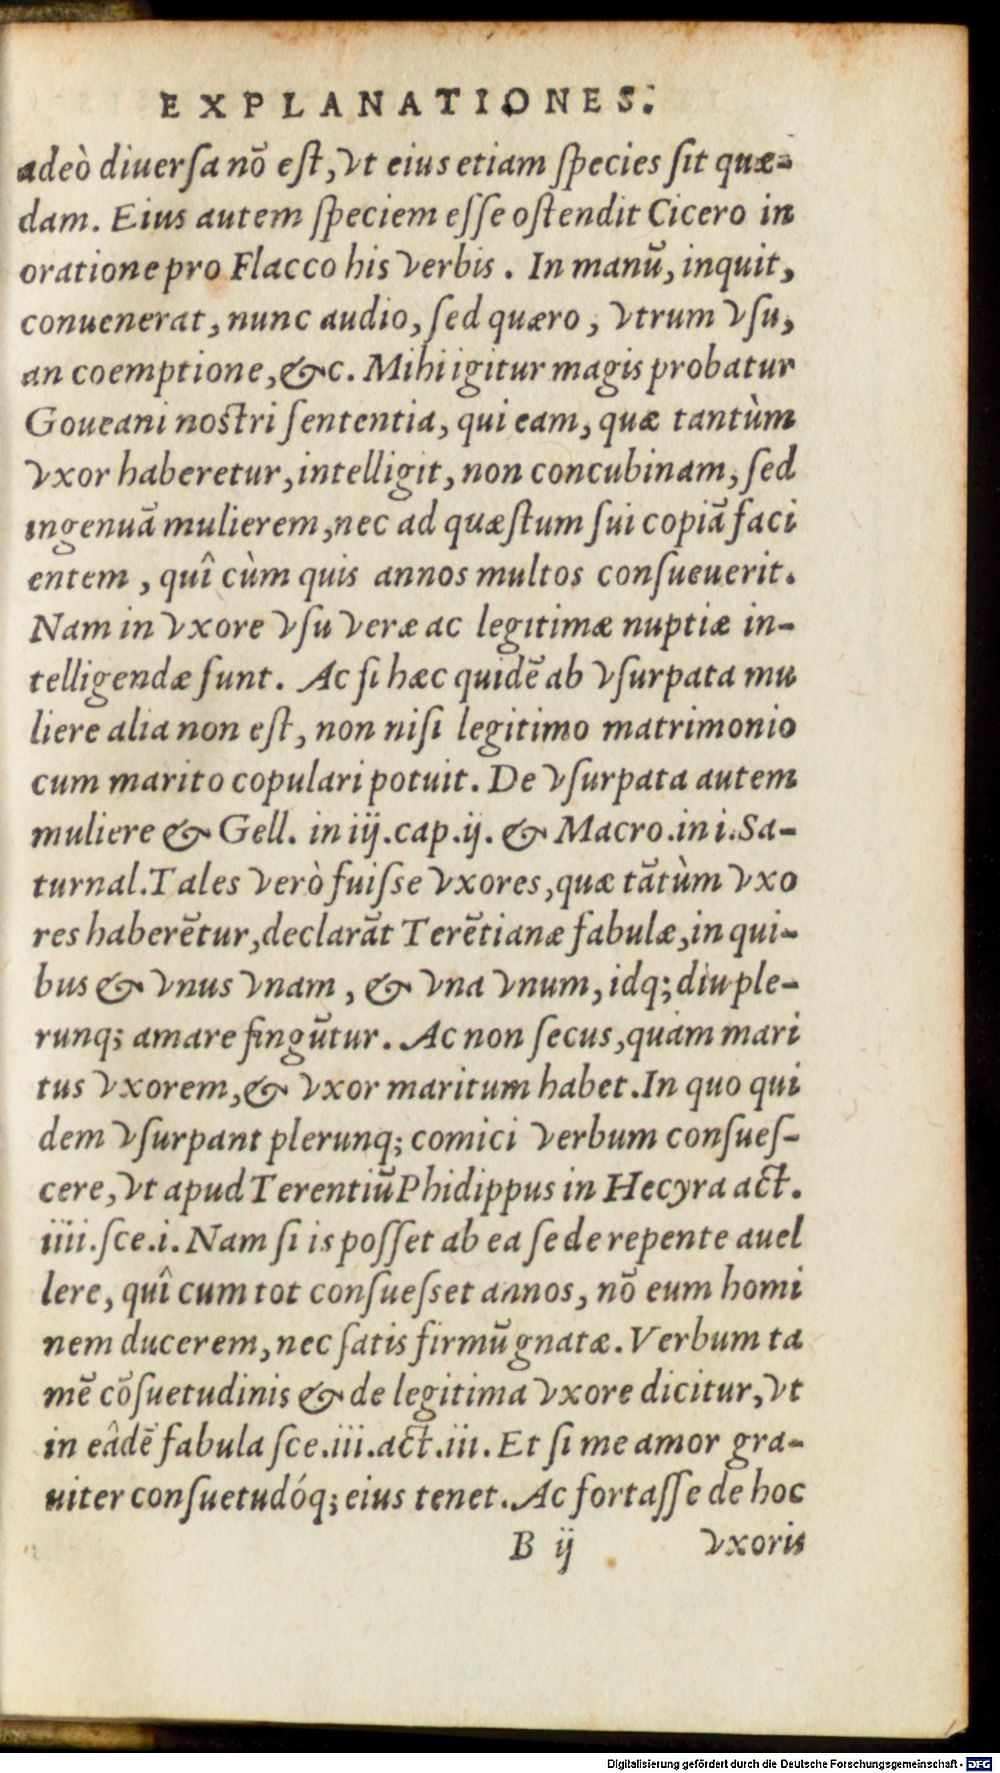 EXPLANATIONES.
adeò diuerſa nõ eſt, vt eius etiam ſpecies ſit quæ-
dam. Eius autem ſpeciem eſſe oſtendit Cicero in
oratione pro Flacco his verbis. In manũ, inquit,
conuenerat, nunc audio, ſed quæro, vtrum vſu,
an coemptione, &c. Mihi igitur magis probatur
Goueani noſtri ſententia, qui eam, quæ tantùm
vxor haberetur, intelligit, non concubinam, ſed
ingenuã mulierem, nec ad quæſtum ſui copiã faci
entem, quî cùm quis annos multos conſueuerit.
Nam in vxore vſu veræ ac legitimæ nuptiæ in-
telligendæ ſunt. Ac ſi hæc quidẽ ab vſurpata mu
liere alia non eſt, non niſi legitimo matrimonio
cum marito copulari potuit. De vſurpata autem
muliere & Gell. in iij.cap.ij. & Macro.in i.Sa-
turnal. Tales verò fuiſse vxores, quæ tãtùm vxo
res haberẽtur, declarãt Terẽtianæ fabulæ, in qui-
bus & vnus vnam, & vna vnum, idq; diu ple-
runq; amare fingũtur. Ac non ſecus, quàm mari
tus vxorem, & vxor maritum habet. In quo qui
dem vſurpant plerunq; comici verbum conſueſ-
cere, vt apud Terentiũ Phidippus in Hecyra act.
iiii.ſce.i. Nam ſi is poſſet ab ea ſe derepente auel
lere, quî cum tot conſueſset annos, nõ eum homi
nem ducerem, nec ſatis firmũ gnatæ. Verbum ta
mẽ cõſuetudinis & de legitima vxore dicitur, vt
in eâdẽ fabula ſce.iii.act.iii. Et ſi me amor gra-
uiter conſuetudóq; eius tenet. Ac fortaſſe de hoc
B ij vxoris
Digitalisierung gefördert durch die Deutsche Forschungsgemeinschaft - DFG